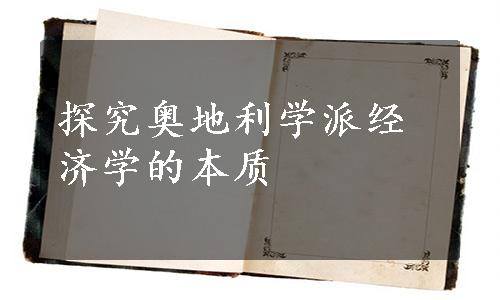 探究奥地利学派经
济学的本质